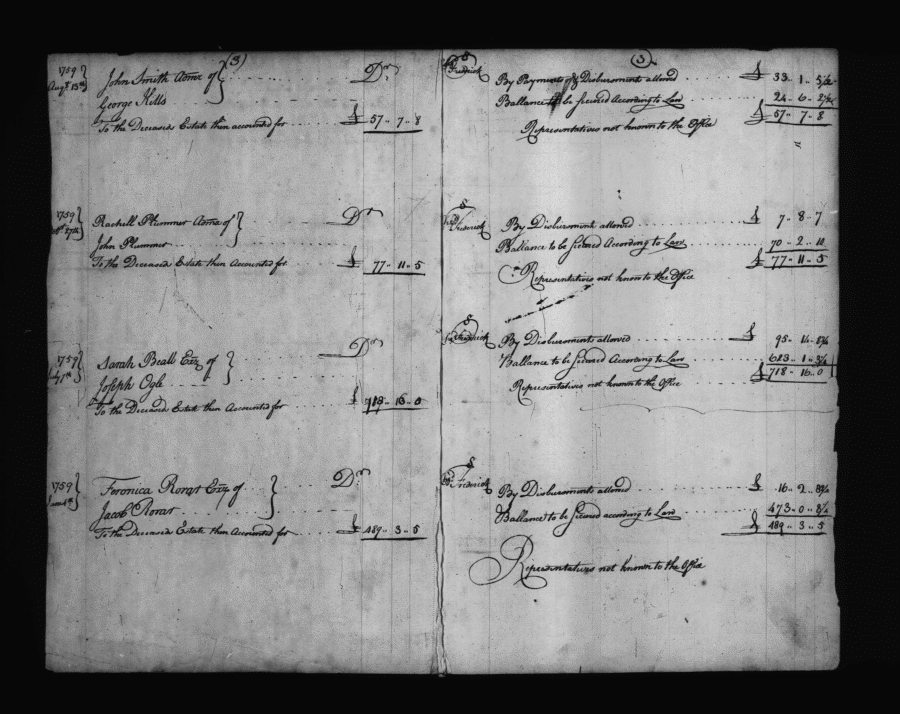 (3)
1759
Augt 15th
John Smith Admr of
Dr
George Kills
To the Deceased Estate then accounted for £ 57 .. 7 .. 8
1759
27th
Rachell Plummer Admx of
Dr
John Plummer
To the Deceased Estate then Accounted for £ 77 .. 11 .. 5
1759
Sarah Beall Exx of
Dr
Joseph Ogle
To the Deceased Estate then Accounted for £ 718 .. 16 .. 0
1759
Feronica Rorar Exx of
Dr
Jacob Rorar
To the Deceased Estate then Accounted for £ 489 .. 3 .. 5
(3)
Frederick
By Payments & Disbursments allowed £ 33 .. 1 .. 5 1/2
Ballance to be secured According to Law 24 .. 6 .. 2 1/2
£ 57 .. 7 .. 8
Representatives not known to the Office
Frederick
By Disbursments allowed £ 7 .. 8 .. 7
Ballance to be secured According to Law 70 .. 2 .. 10
£ 77 .. 11 .. 5
Representatives not known to the Office
Frederick
By Disbursments allowed £ 95 .. 14 ..
Ballance to be secured According to Law 623 .. 1 ..
£ 718 .. 16 .. 0
Representatives not known to the Office
Frederick
By Disbursments allowed £ 16 .. 2 .. 8 3/4
Ballance to be secured according to Law 473 .. 0 .. 8 1/4
£ 489 .. 3 .. 5
Representatives not known to the Office